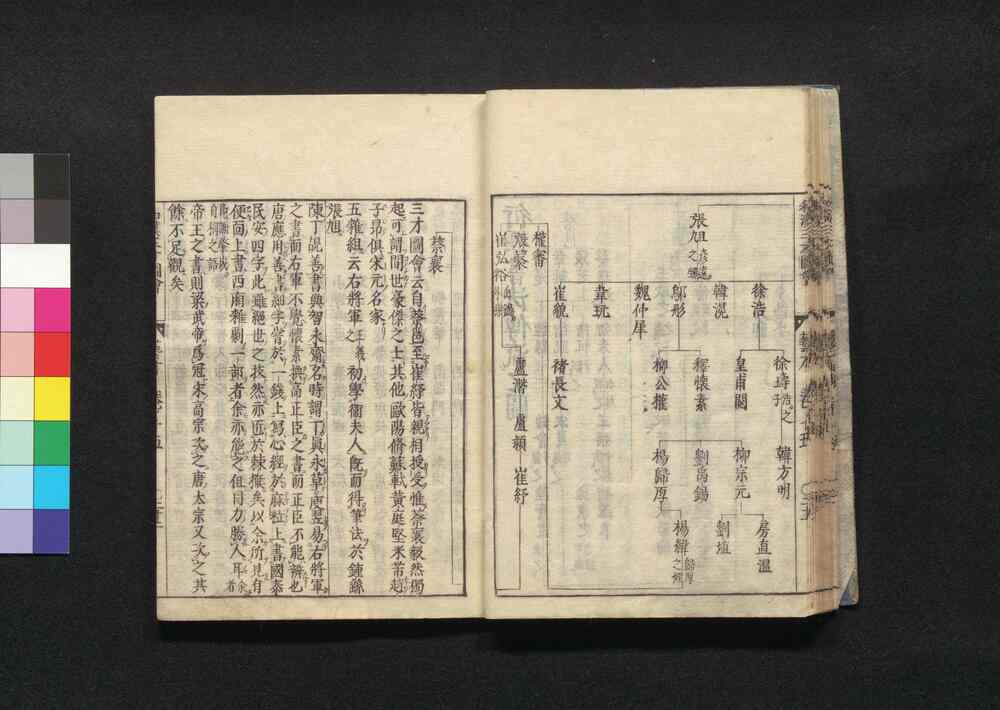 張旭彦遠之甥
徐浩
韓滉
鄔彤
魏仲犀
韋玩
崔邈
徐璹浩之子
皇甫閱
釋懷素
柳公權
禇長文
韓方明
柳宗元
劉禹錫
楊歸厚
房直溫
劉埴
楊緯歸厚之姪
權審
張
崔弘裕
盧潛
盧潁
崔紓
蔡襄
三才圖會云自蔡邕至崔紓皆親相授受惟蔡襄毅然獨
起可謂間世豪傑之士其他歐陽脩蘇軾黄庭堅米芾趙
子昂俱宋元名家
五雜組云右將軍王羲之初學衞夫人既而得筆法於鍾繇
張旭
陳丁覘善書與智永齊名時謂丁眞永草庾翼易右將軍
之書而右軍不覺懷素換高正臣之書而正臣不能辨也
唐應用善書細字嘗於一錢上寫心經於麻粒上書國泰
民安四字此雖絕世之技然亦近於棘猴矣以余所見有
便面上書西廂雜劇一部者余亦能之但目力勝人耳
帝王之書則梁武帝爲冠宋高宗次之唐太宗又次之其
餘不足觀矣